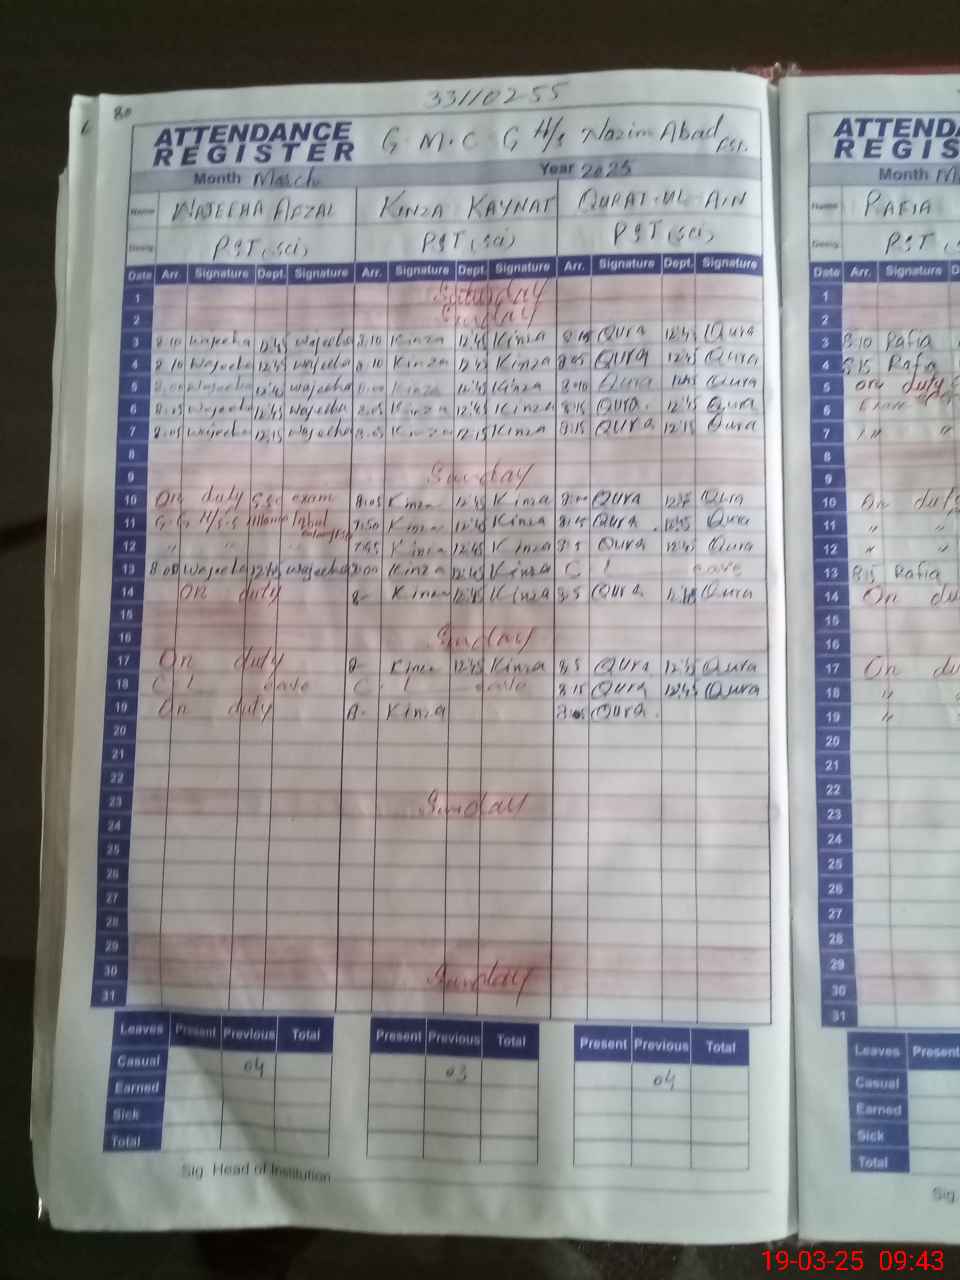 80
33110255
ATTENDANCE REGISTER G.M.C G H/S Nazim Abad FSD.
Month March Year 2025
Name WAJEEHA AFZAL KINZA KAYNAT QURAT-UL-AIN
Desig. PST (sci) PST (sci) PST (sci)
Date Arr. Signature Dept. Signature Arr. Signature Dept. Signature Arr. Signature Dept. Signature
1 Saturday
2 Sunday
3 8:10 Wajeeha 12:45 Wajeeha 8:10 Kinza 12:45 Kinza 8:15 Qura 12:45 Qura
4 8:10 Wajeeha 12:45 Wajeeha 8:10 Kinza 12:45 Kinza 8:05 Qura 12:45 Qura
5 Wajeeha 12:45 Wajeeha Kinza 12:45 Kinza 8:10 Qura 12:45 Qura
6 8:15 Wajeeha 12:45 Wajeeha 8:05 Kinza 12:45 Kinza 8:15 Qura 12:45 Qura
7 8:05 Wajeeha 12:15 Wajeeha 8:05 Kinza 12:15 Kinza 8:15 Qura 12:15 Qura
8
9 Sunday
10 On duty SSC exam 8:05 Kinza 12:45 Kinza Qura Qura
11 G.G H/S.S Iqbal 7:50 Kinza 12:45 Kinza 8:15 Qura 12:45 Qura
12 " " 7:45 Kinza 12:45 Kinza 8:5 Qura 12:45 Qura
13 8:00 Wajeeha Wajeeha 8:00 Kinza 12:45 Kinza C leave
14 On duty 8- Kinza 12:45 Kinza 8:5 Qura Qura
15
16 Sunday
17 On duty 8- Kinza 12:45 Kinza 8:5 Qura 12:45 Qura
18 C leave C leave 8:15 Qura 12:45 Qura
19 On duty 8- Kinza 8:05 Qura
20
21
22
23 Sunday
24
25
26
27
28
29
30 Sunday
31
Leaves Present Previous Total Present Previous Total Present Previous Total
Casual 04 03 04
Earned
Sick
Total
Sig. Head of Institution
ATTEND
REGIS
Month M
Name RAFIA
Desig. PST (s
Date Arr. Signature D
1
2
3 8:10 Rafia
4 8:15 Rafia
5 On duty
6
7 " "
8
9
10 On duty
11 " "
12 " "
13 8:15 Rafia
14 On du
15
16
17 On du
18 "
19 "
20
21
22
23
24
25
26
27
28
29
30
31
Leaves Present
Casual
Earned
Sick
Total
Sig
19-03-25 09:43